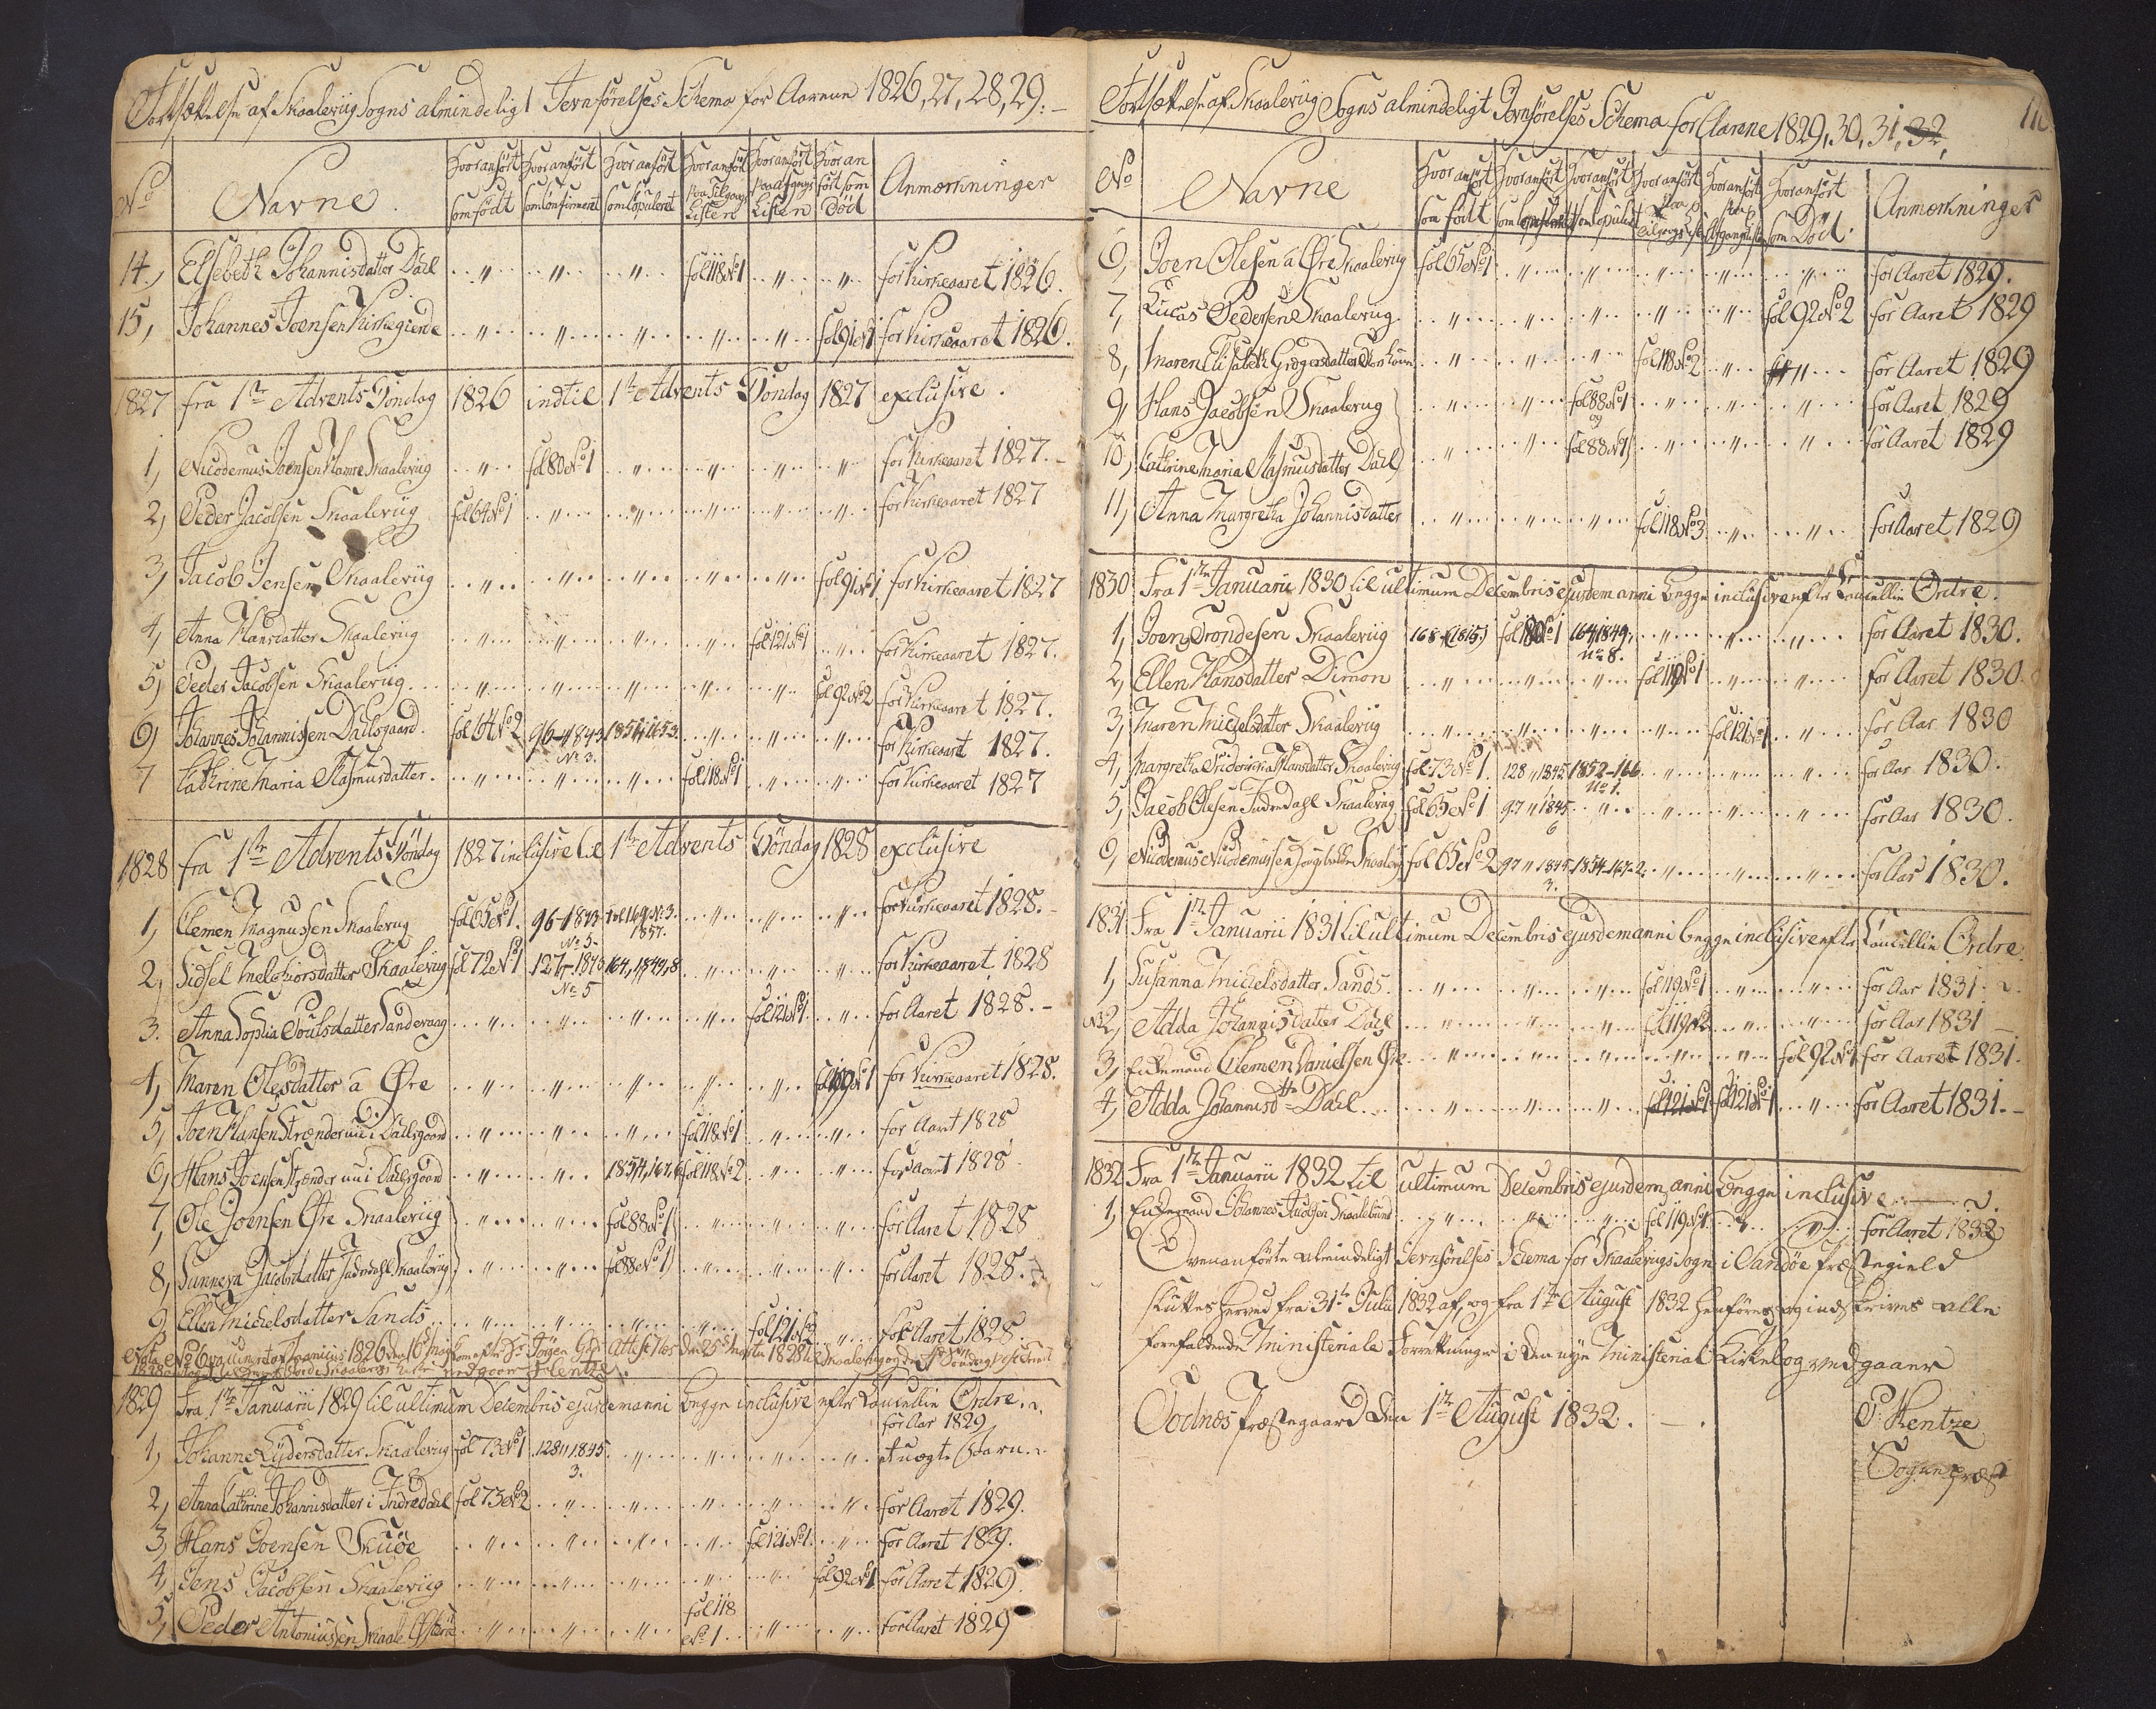 Fortsættelse af Skaaleviig Sogns almindeligt Jevnførelses Schema for Aarene 1826, 27, 28, 29.
No Navne Hvor anført som født Hvor anført som Confirmeret Hvor anført som Copuleret Hvor anført paa Tilgangs Listen Hvor anført paa Afgangs Listen Hvor anført som Død Anmærkninger
14, Elsebeth Johannisdatter Dahl fol 118 No 1 for Kirkeaaret 1826.
15, Johannes Joensen Kirkegierde fol 91 No 1 for Kirkeaaret 1826.
1827 fra 1te Advents Søndag 1826 indtil 1te Advents Søndag 1827 exclusive.
1, Nicodemus Joensen Skaaleviig fol 80 No 1 for Kirkeaaret 1827.
2, Peder Jacobsen Skaaleviig fol 64 No 1 for Kirkeaaret 1827
3, Jacob Jensen Skaaleviig fol 91 No 1 for Kirkeaaret 1827
4, Anna Hansdatter Skaaleviig fol 121 No 1 for Kirkeaaret 1827.
5, Peder Jacobsen Skaaleviig fol 92 No 2 for Kirkeaaret 1827.
6, Johannes Johannissen Dahlsgaard fol 64 No 2 96-1843 No 3. 1854, 165 3. for Kirkeaaret 1827.
7 Cathrine Maria Rasmusdatter fol 118 No 1 for Kirkeaaret 1827
1828 fra 1te Advents Søndag 1827 inclusive til 1te Advents Søndag 1828 exclusive
1, Clemen Magnussen Skaaleviig fol 65 No 1. 96-1843 No 5 fol 169 No 3. 1857. for Kirkeaaret 1828.
2, Sidsel Melchiorsdatter Skaaleviig fol 72 No 1 127-1843 No 5 164, 1849, 8 for Kirkeaaret 1828
3. Anna Sophia Poulsdatter Sandevaag fol 121 No 1 for Aaret 1828.
4, Maren Olesdatter a Øre No 1 for Kirkeaaret 1828.
5, Joen Hansen nu i Dahlsgaard fol 118 No 1 for Aaret 1828
6, Hans Joensen nu i Dahlsgaard 1854, 167, 6 fol 118 No 2 for Aaret 1828
7, Ole Joensen Øre Skaaleviig fol 88 No 1 for Aaret 1828
8, Sunneva Jacobsdatter Skaaleviig fol 88 No 1 for Aaret 1828.
9, Ellen Michelsdatter Sands fol 121 No 2 for Aaret 1828.
1829 Fra 1te Januarii 1829 til ultimum Decembris ejusdem anni begge inclusive efter Cancellie Ordre.
1, Johanne Lydersdatter Skaaleviig fol 73 No 1 128 " 1845. 3. for Aar 1829 et uægte Barn.
2, Anna Cathrine Johannisdatter i Indredahl fol 73 No 2 for Aaret 1829.
3, Hans Joensen Skuøe fol 121 No 1. for Aaret 1829.
4, Jens Jacobsen Skaaleviig fol 92 No 1 for Aaret 1829
5, Peder Antoniussen Skaale Østerøe fol 118 No 1 for Aaret 1829
Fortsættelse af Skaaleviig Sogns almindeligt Jevnførelses Schema for Aarene 1829, 30, 31, 32,
No Navne Hvor anført som født Hvor anført som Confirmeret Hvor anført som Copuleret Hvor anført paa Tilgangs Listen Hvor anført paa Afgangs Listen Hvor anført som Død. Anmærkninger
6, Joen Olesen a Øre Skaaleviig fol 65 No 1 for Aaret 1829.
7, Lucas Pedersen Skaaleviig fol 92 No 2 for Aaret 1829
8, Maren Elisabeth Gregersdatter Thorshavn fol 118 No 2 for Aaret 1829
9, Hans Jacobsen Skaaleviig fol 88 No 1 og for Aaret 1829
10, Cathrine Maria Rasmusdatter Dahl fol 88 No 1 for Aaret 1829
11, Anna Margretha Johannisdatter fol 118 No 3 for Aaret 1829
1830 Fra 1te Januarii 1830 til ultimum Decembris ejusdem anni begge inclusive efter Cancellie Ordre.
1, Joen Trondesen Skaaleviig 168 (1815) fol 80 No 1 164, 1849, No 8. for Aaret 1830.
2, Ellen Hansdatter Dimon fol 119 No 1 for Aaret 1830.
3, Maren Michelsdatter Skaaleviig fol 121 No 1 for Aar 1830
4, Margretha Friderica Hansdatter Skaaleviig fol 73 No 1. 128 " 1845 1852-166 No 1. for Aar 1830.
5, Jacob Olesen Indredahl Skaaleviig fol 65 No 1 97 " 1845 6 for Aar 1830.
6, Nicodemus Nicodemussen Skaaleviig fol 65 No 2 97 " 1845 3. 1854-167-2. for Aar 1830.
1831 Fra 1te Januarii 1831 til ultimum Decembris ejusdem anni begge inclusive efter Cancellie Ordre.
1, Susanna Michelsdatter Sands fol 119 No 1 for Aar 1831
No 2, Adda Johannisdatter Dahl fol 119 No 2 for Aar 1831
3, Enkemand Clemen Danielsen Øre fol 92 No 1 for Aaret 1831.
4, Adda Johannisdtr Dahl fol 121 No 1 fol 121 No 1 for Aaret 1831.
1832 Fra 1te Januarii 1832 til ultimum Decembris ejusdem anni begge inclusive
1, Enkemand Johannes Skaalebund fol 119 No 1. for Aaret 1832
Ovenanførte almindeligt Jevnførelses Schema for Skaaleviigs Sogn i Sandøe Præstegield
sluttes herved fra 31te Julii 1832 af, og fra 1te August 1832 henføres og indskrives alle
forefaldende Ministeriale Forretninger i den nye Ministerial Kirkebog vedgaaer
Todnæs Præstegaard den 1te August 1832.
P: Hentze
Sognepræst